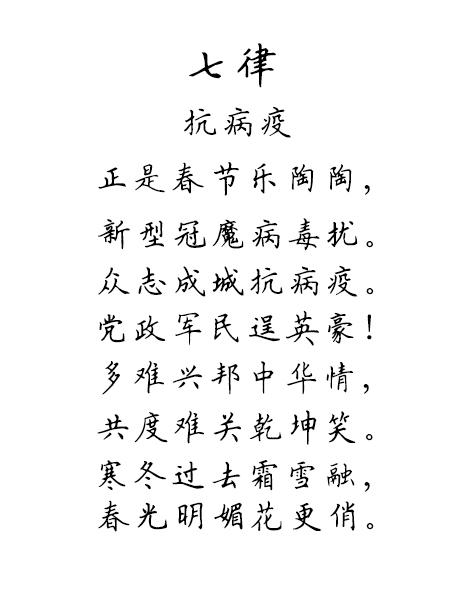 七律
抗病疫
正是春节乐陶陶，
新型冠魔病毒扰。
众志成城抗病疫。
党政军民逞英豪！
多难兴邦中华情，
共度难关乾坤笑。
寒冬过去霜雪融，
春光明媚花更俏。